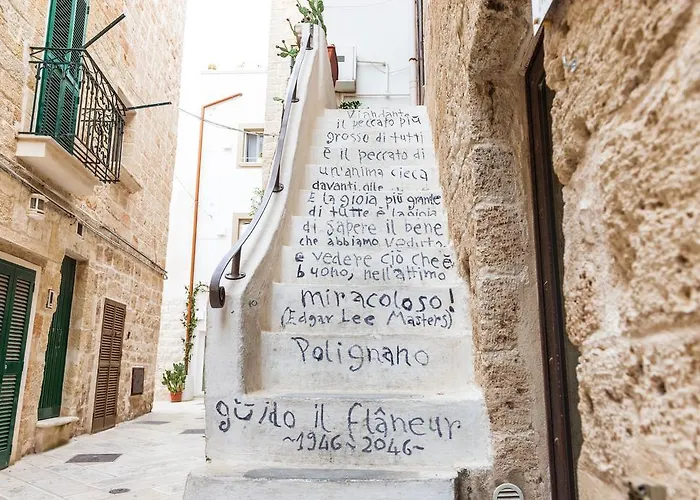 Viandante
il peccato più
grosso di tutti
è il peccato di
un'anima cieca
davanti alle
E la gioia più grande
di tutte è la gioia
di sapere il bene
che abbiamo veduto
e vedere ciò che è
buono, nell'attimo
miracoloso!
(Edgar Lee Masters)
Polignano
guido il flâneur
~1946~2046~